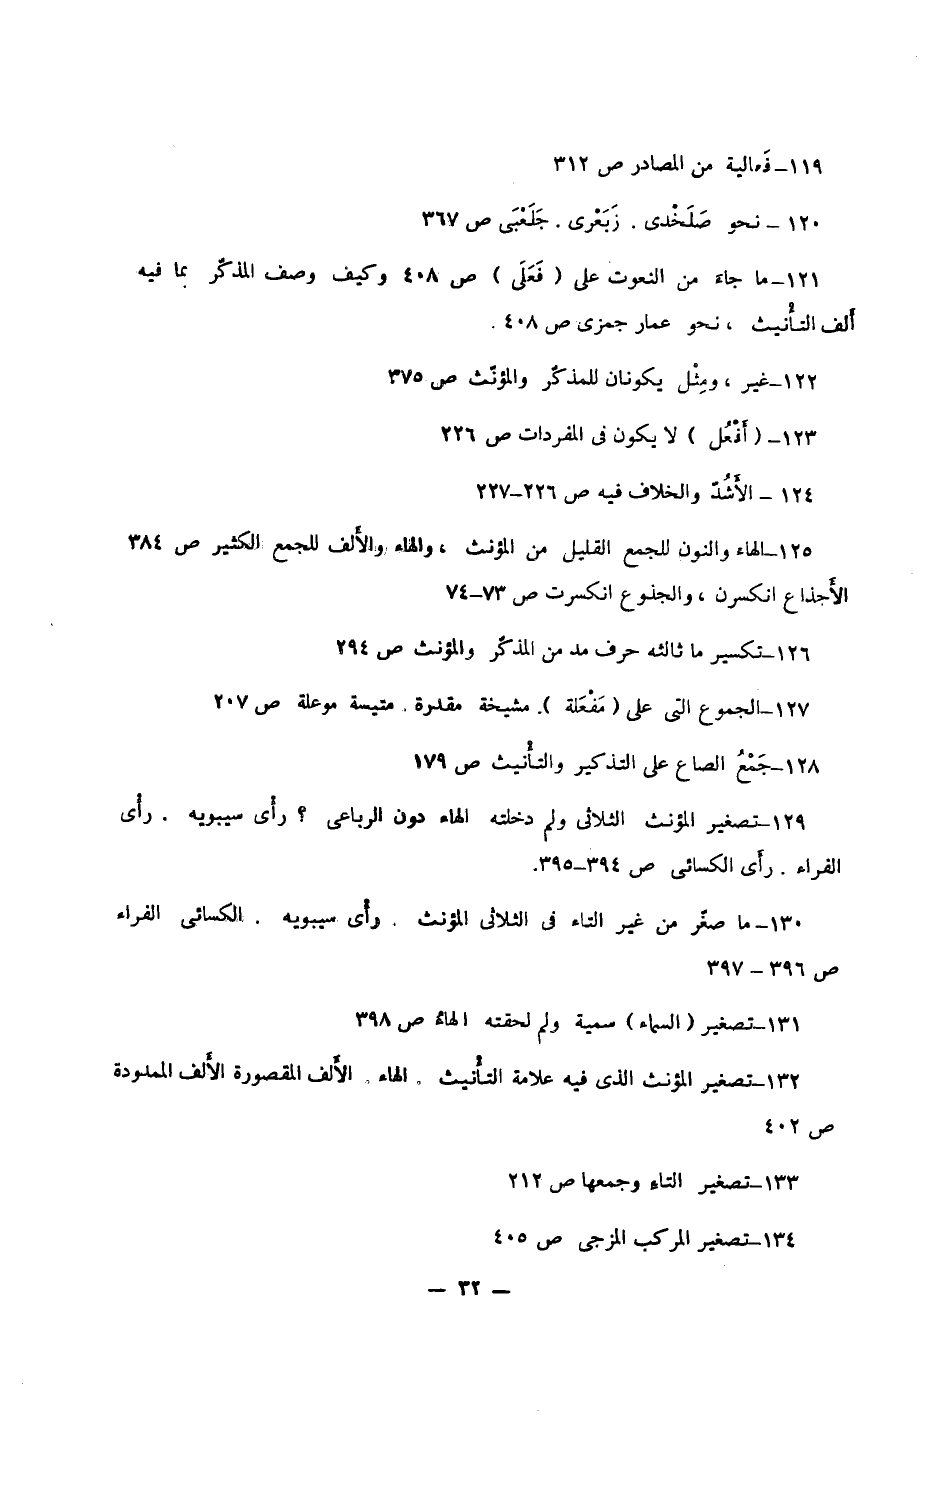 ١١٩ـ فَعالية من المصادر ص ٣١٢
١٢٠ ـ نحو صَلَخْدى . زَبَعْرى . جَلَعْبَى ص ٣٦٧
١٢١ـ ما جاءَ من النعوت على ( فَعَلَى ) ص ٤٠٨ وكيف وصف المذكّر بما فيه
ألف التأْنيث ، نحو عمار جمزى ص ٤٠٨ .
١٢٢ـ غير ، ومِثْل يكونان للمذكّر والمؤنّث ص ٣٧٥
١٢٣ـ ( أَفْعُل ) لا يكون فى المفردات ص ٢٢٦
١٢٤ ـ الأَشُدّ والخلاف فيه ص ٢٢٦ـ٢٢٧
١٢٥ـ الهاء والنون للجمع القليل من المؤنث ، والهاء والأَلف للجمع الكثير ص ٣٨٤
الأَجذاع انكسرن ، والجذوع انكسرت ص ٧٣ـ٧٤
١٢٦ـ تكسير ما ثالثه حرف مد من المذكّر والمؤنث ص ٢٩٤
١٢٧ـ الجموع التى على ( مَفْعَلة ). مشيخة مقدرة . متيسة موعلة ص ٢٠٧
١٢٨ـ جَمْعُ الصاع على التذكير والتأْنيث ص ١٧٩
١٢٩ـ تصغير المؤنث الثلاثى ولم دخلته الهاء دون الرباعى ؟ رأْى سيبويه . رأْى
الفراء . رأَى الكسائى ص ٣٩٤ـ٣٩٥.
١٣٠ـ ما صغّر من غير التاء فى الثلاثى المؤنث . رأْى سيبويه . الكسائى الفراء
ص ٣٩٦ ـ ٣٩٧
١٣١ـ تصغير ( السماء ) سمية ولم لحقته الهاءُ ص ٣٩٨
١٣٢ـ تصغير المؤنث الذى فيه علامة التأْنيث . الهاء . الأَلف المقصورة الأَلف الممدودة
ص ٤٠٢
١٣٣ـ تصغير التاء وجمعها ص ٢١٢
١٣٤ـ تصغير المركب المزجى ص ٤٠٥
ـ ٣٢ ـ